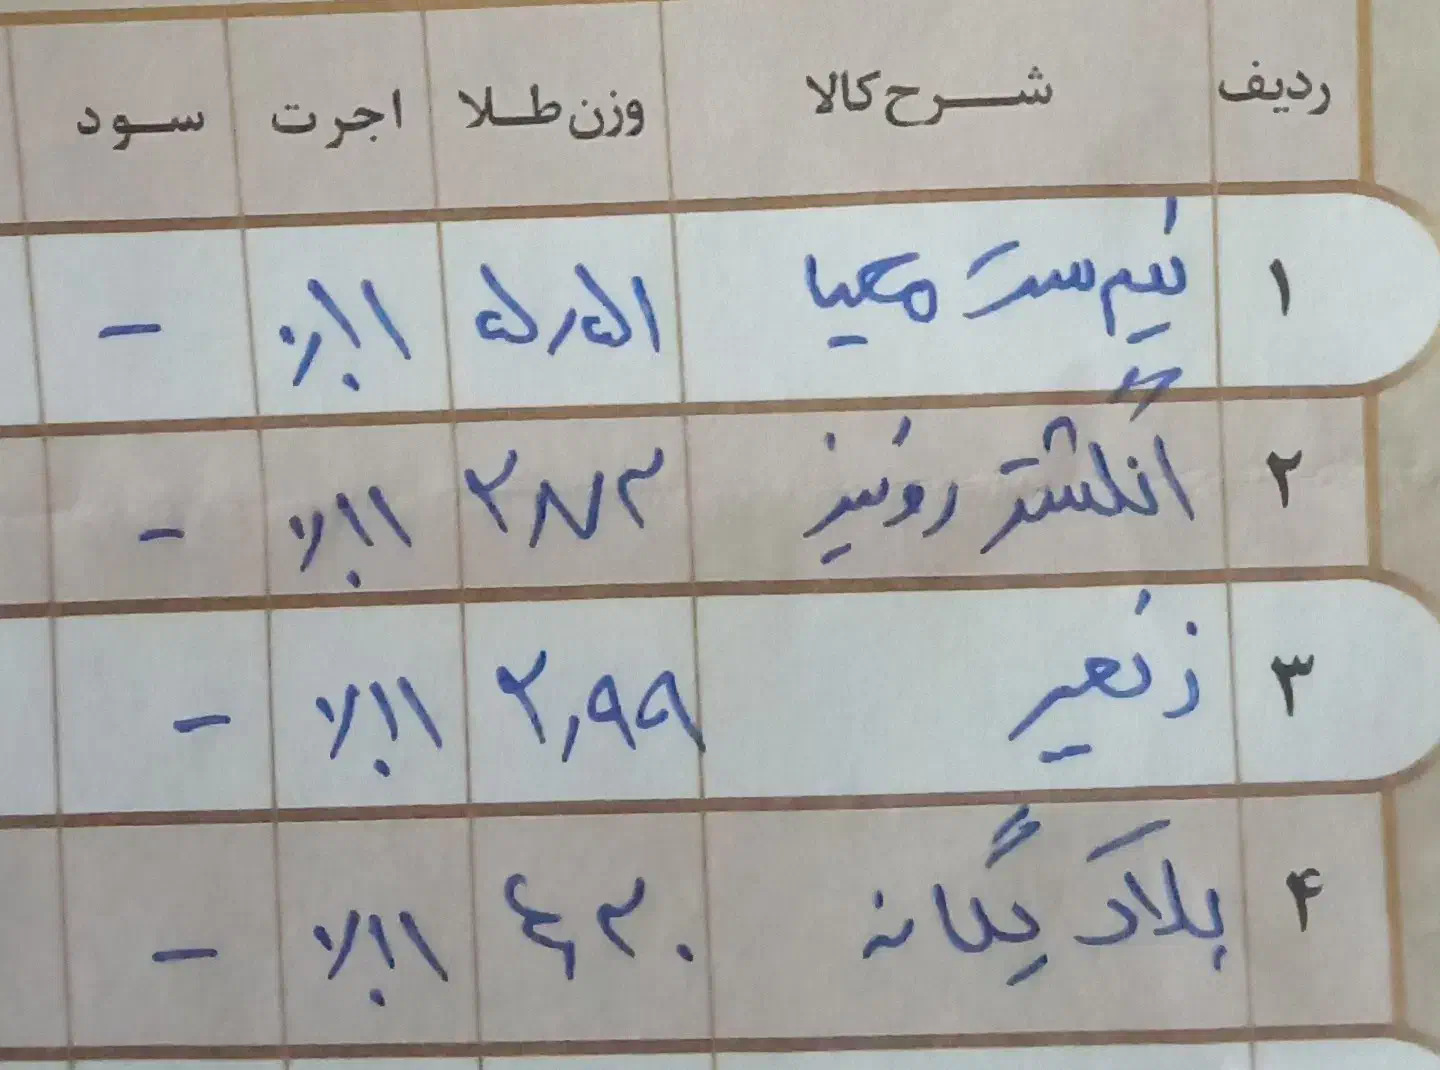 ردیف شرح کالا وزن طلا اجرت سود
۱ نیم ست محیا ۵٫۵۱ ۱۱٪ -
۲ انگشتر رونیز ۲٫۷۳ ۱۱٪ -
۳ زنجیر ۲٫۹۹ ۱۱٪ -
۴ پلاک یگانه ۴٫۳۰ ۱۱٪ -